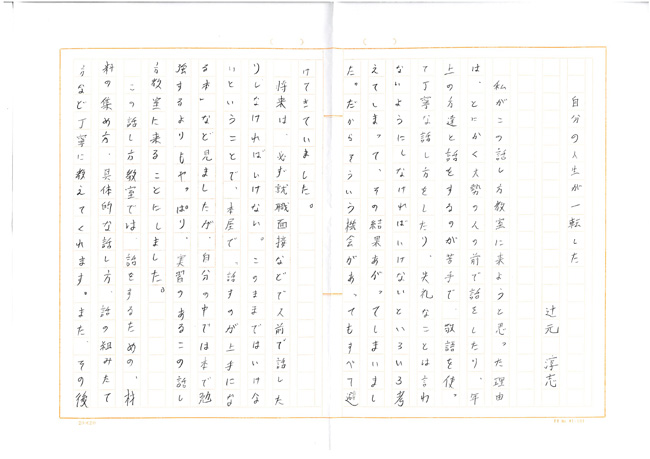 自分の人生が一転した
辻元 淳志
私がこの話し方教室に来ようと思った理由
は、とにかく大勢の人の前で話をしたり、年
上の方達と話をするのが苦手で、敬語を使っ
て丁寧な話し方をしたり、失礼なことは言わ
ないようにしなければいけないといろいろ考
えてしまって、その結果あがってしまいまし
た。だからそういう機会があってもすべて避
けてきていました。
将来は、必ず就職面接などで人前で話した
りしなければいけない。このままではいけな
いということで、本屋で、話すのが上手にな
る本」など見ましたが、自分の中では本で勉
強するよりもやっぱり、実習のあるこの話し
方教室に来ることにしました。
この話し方教室では、話をするための、材
料の集め方、具体的な話し方、話の組みたて
方など丁寧に教えてくれます。また、その後